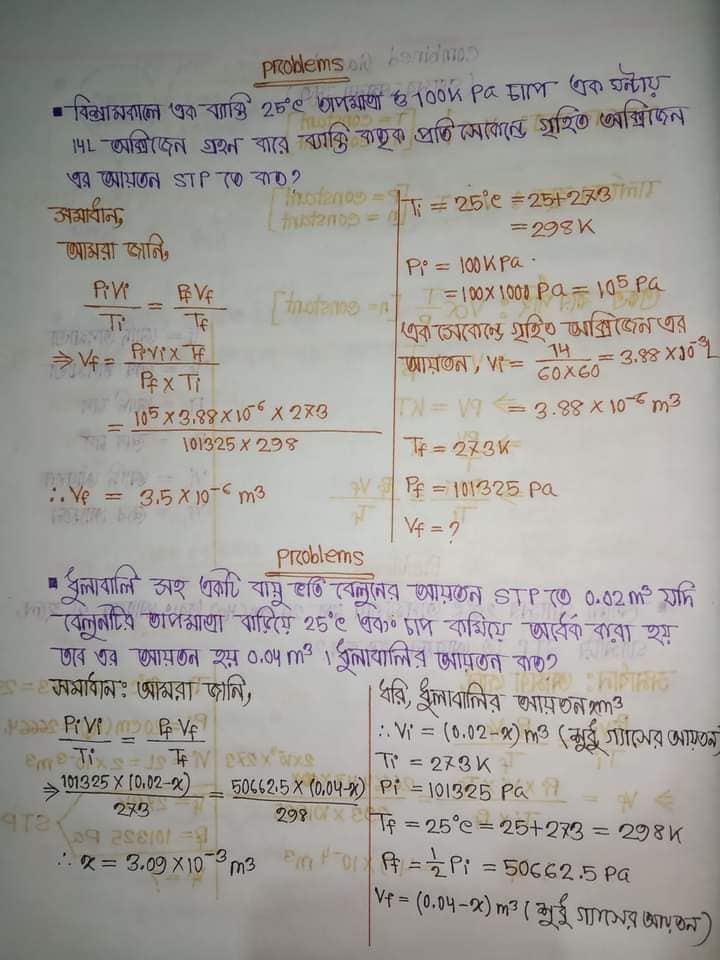 Problems
▪ বিশ্রামকালে এক ব্যাক্তি 25°c তাপমাত্রা ও 100K Pa চাপে এক ঘন্টায়
14L অক্সিজেন গ্রহন করে ব্যাক্তি কতৃক প্রতি সেকেন্ডে গৃহিত অক্সিজেন
এর আয়তন STP তে কত?
সমাধান,
আমরা জানি,
PiVi/Ti = PfVf/Tf
⇒ Vf = PiVi × Tf / Pf × Ti
= 10⁵ × 3.88 × 10⁻⁶ × 273 / 101325 × 298
∴ Vf = 3.5 × 10⁻⁶ m³
Ti = 25°c = 25+273
= 298K
Pi = 100K Pa
= 100 × 1000 Pa = 10⁵ Pa
এক সেকেন্ডে গৃহিত অক্সিজেন এর
আয়তন, Vi = 14/60×60 = 3.88 × 10⁻³L
= 3.88 × 10⁻⁶ m³
Tf = 273K
Pf = 101325 Pa
Vf = ?
Problems
▪ ধুলাবালি সহ একটি বায়ু ভর্তি বেলুনের আয়তন STP তে 0.02m³ যদি
বেলুনটির তাপমাত্রা বারিয়ে 25°c এবং চাপ কমিয়ে অর্ধেক করা হয়
তবে এর আয়তন হয় 0.04m³ । ধুলাবালির আয়তন কত?
সমাধান: আমরা জানি,
PiVi/Ti = PfVf/Tf
⇒ 101325 × (0.02-x)/273 = 50662.5 × (0.04-x)/298
∴ x = 3.09 × 10⁻³ m³
ধরি, ধুলাবালির আয়তন xm³
∴ Vi = (0.02-x) m³ (শুধু গ্যাসের আয়তন)
Ti = 273K
Pi = 101325 Pa
Tf = 25°c = 25+273 = 298K
Pf = 1/2 Pi = 50662.5 Pa
Vf = (0.04-x) m³ (শুধু গ্যাসের আয়তন)